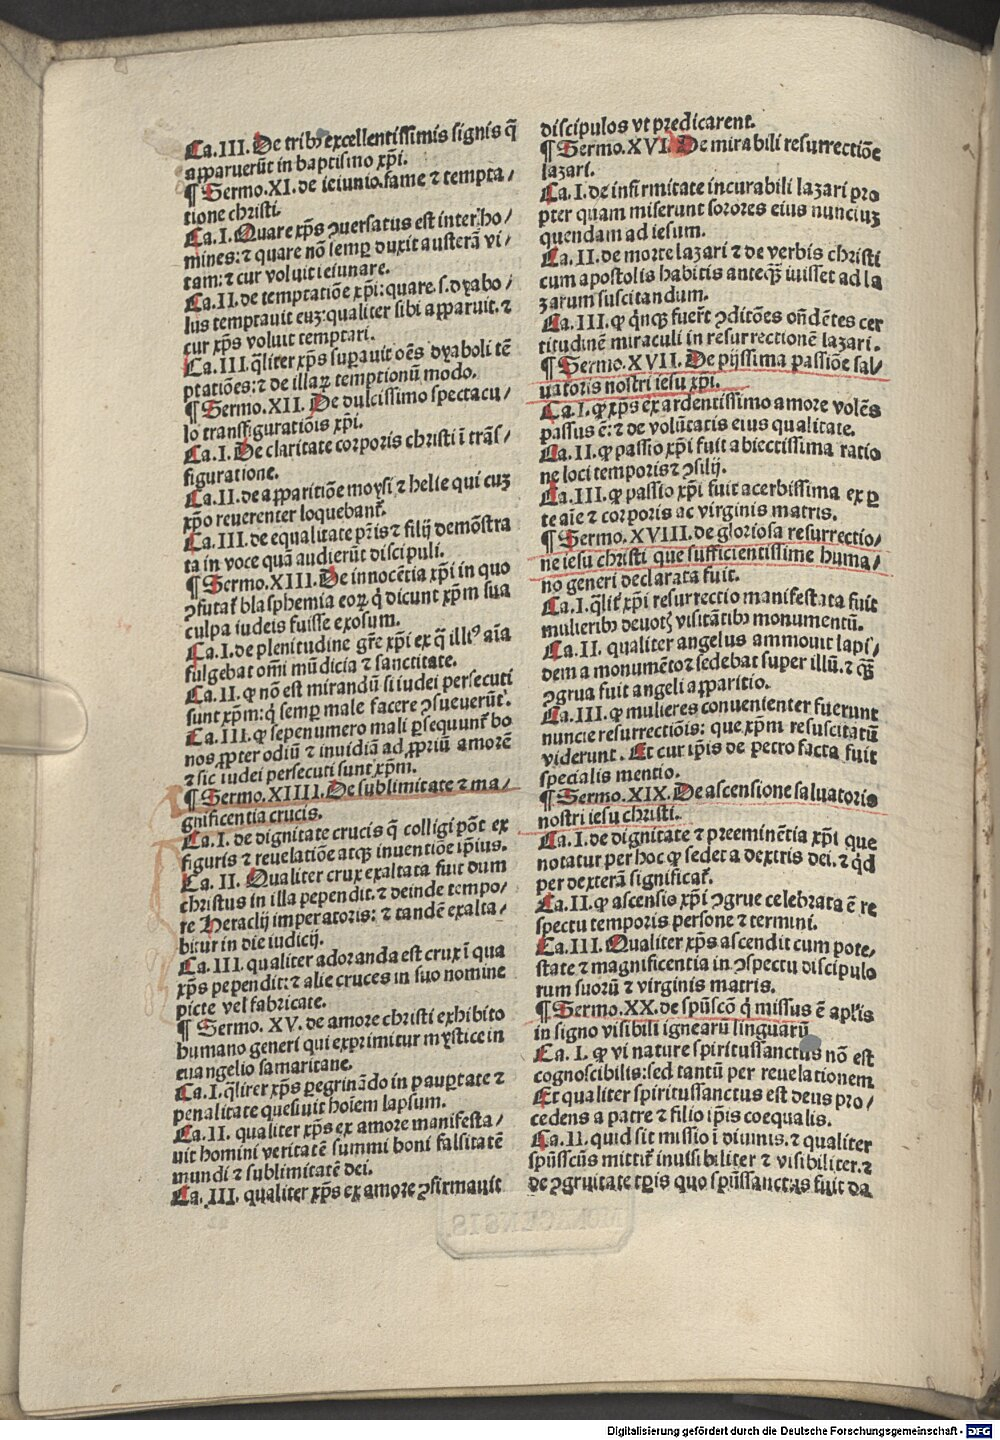 Ca.III. De tribꝰ excellentissimis signis q̃
apparuerũt in baptismo xp̃i.
¶ Sermo.XI. de ieiunio.fame ⁊ tempta/
tione christi.
Ca.I. Quare xp̃s ꝯuersatus est inter ho/
mines:⁊ quare nõ semꝑ duxit austerã vi/
tam:⁊ cur voluit ieiunare.
Ca.II. de temptatiõe xp̃i:quare.s.dyabo/
lus temptauit euʒ:qualiter sibi apparuit.⁊
cur xp̃s voluit temptari.
Ca.III. q̃liter xp̃s supauit oẽs dyaboli tẽ
ptatiões:⁊ de illaꝝ temptionũ modo.
¶ Sermo.XII. De dulcissimo spectacu/
lo transfiguratiõis xp̃i.
Ca.I. De claritate corporis christi ĩ trãs/
figuratione.
Ca.II. de apparitiõe moysi ⁊ helie qui cuʒ
xp̃o reuerenter loquebant̃.
Ca.III. de equalitate pr̃is ⁊ filij demõstra
ta in voce quã audierũt discipuli.
¶ Sermo.XIII. De innocẽtia xp̃i in quo
ꝯfutat̃ blasphemia eoꝝ q̇ dicunt xp̃m sua
culpa iudeis fuisse exosum.
Ca.I. de plenitudine gr̃e xp̃i ex q̃ illiꝰ aĩa
fulgebat om̃i mũdicia ⁊ sanctitate.
Ca.II. ꝙ nõ est mirandũ si iudei persecuti
sunt xp̃m:q̇ semꝑ male facere ꝯsueuerũt.
Ca.III. ꝙ sepenumero mali ꝑsequunt̃ bo
nos ꝓpter odiũ ⁊ inuidiã ad ꝓpriũ amorẽ
⁊ sic iudei persecuti sunt xp̃m.
¶ Sermo.XIIII. De sublimitate ⁊ ma/
gnificentia crucis.
Ca.I. de dignitate crucis q̃ colligi põt ex
figuris ⁊ reuelatiõe atqʒ inuentiõe ip̃ius.
Ca. II. Qualiter crux exaltata fuit dum
christus in illa pependit.⁊ deinde tempo/
re Heraclij imperatoris:⁊ tandẽ exalta/
bitur in die iudicij.
Ca.III. qualiter adoranda est crux ĩ qua
xp̃s pependit:⁊ alie cruces in suo nomine
picte vel fabricate.
¶ Sermo. XV. de amore christi exhibito
humano generi qui exprimitur mystice in
euangelio samaritane.
Ca.I. q̃lirer xp̃s ꝑegrinãdo in pauꝑtate ⁊
penalitate quesiuit hoĩem lapsum.
Ca.II. qualiter xp̃s ex amore manifesta/
uit homini veritatẽ summi boni falsitatẽ
mundi ⁊ sublimitatẽ dei.
Ca. III. qualiter xp̃s ex amore ꝯfirmauit
discipulos vt predicarent.
¶ Sermo.XVI. De mirabili resurrectiõe
lazari.
Ca.I. de infirmitate incurabili lazari pro
pter quam miserunt sorores eius nunciuʒ
quendam ad iesum.
Ca.II. de morte lazari ⁊ de verbis christi
cum apostolis habitis anteqʒ̃ iuisset ad la
zarum suscitandum.
Ca.III. ꝙ q̇nqʒ fuer̃t ꝯditões oñdẽtes cer
titudinẽ miraculi in resurrectionẽ lazari.
¶ Sermo.XVII. De pijssima passiõe sal/
uatoris nostri iesu xp̃i.
Ca.I. ꝙ xp̃s ex ardentissimo amore volẽs
passus ẽ:⁊ de volũtatis eius qualitate.
Ca.II. ꝙ passio xp̃i fuit abiectissima ratio
ne loci temporis ⁊ ꝯsilij.
Ca.III. ꝙ passio xp̃i fuit acerbissima ex ꝑ
te aĩe ⁊ corporis ac virginis matris.
¶ Sermo.XVIII. de gloriosa resurrectio/
ne iesu christi que sufficientissime huma/
no generi declarata fuit.
Ca.I. q̃lit̃ xp̃i resurrectio manifestata fuit
mulieribꝰ deuotꝭ visitãtibꝰ monumentũ.
Ca.II. qualiter angelus ammouit lapi/
dem a monumẽto ⁊ sedebat super illũ.⁊ qʒ̃
ꝯgrua fuit angeli apparitio.
Ca.III. ꝙ mulieres conuenienter fuerunt
nuncie resurrectiõis: que xp̃m resuscitatũ
viderunt. Et cur ip̃is de petro facta fuit
specialis mentio.
¶ Sermo.XIX. De ascensione saluatoris
nostri iesu christi.
Ca.I. de dignitate ⁊ preeminẽtia xp̃i que
notatur per hoc ꝙ sedet a dextris dei.⁊ q̇d
per dexterã significat̃.
Ca.II. ꝙ ascensis xp̃i ꝯgrue celebrata ẽ re
spectu temporis persone ⁊ termini.
Ca.III. Qualiter xp̃s ascendit cum pote/
state ⁊ magnificentia in ꝯspectu discipulo
rum suorũ ⁊ virginis matris.
¶ Sermo.XX. de sp̃uscõ q̇ missus ẽ apl̃is
in signo visibili ignearũ linguarũ
Ca. I. ꝙ vi nature spiritussanctus nõ est
cognoscibilis:sed tantũ per reuelationem
Et qualiter spiritussanctus est deus pro/
cedens a patre ⁊ filio ip̃is coequalis.
Ca.II. quid sit missio ĩ diuinis.⁊ qualiter
sp̃ussctũs mittit̃ inuisibiliter ⁊ visibiliter.⁊
de ꝯgruitate tp̃is quo sp̃ussanctus fuit da
Digitalisierung gefördert durch die Deutsche Forschungsgemeinschaft - DFG